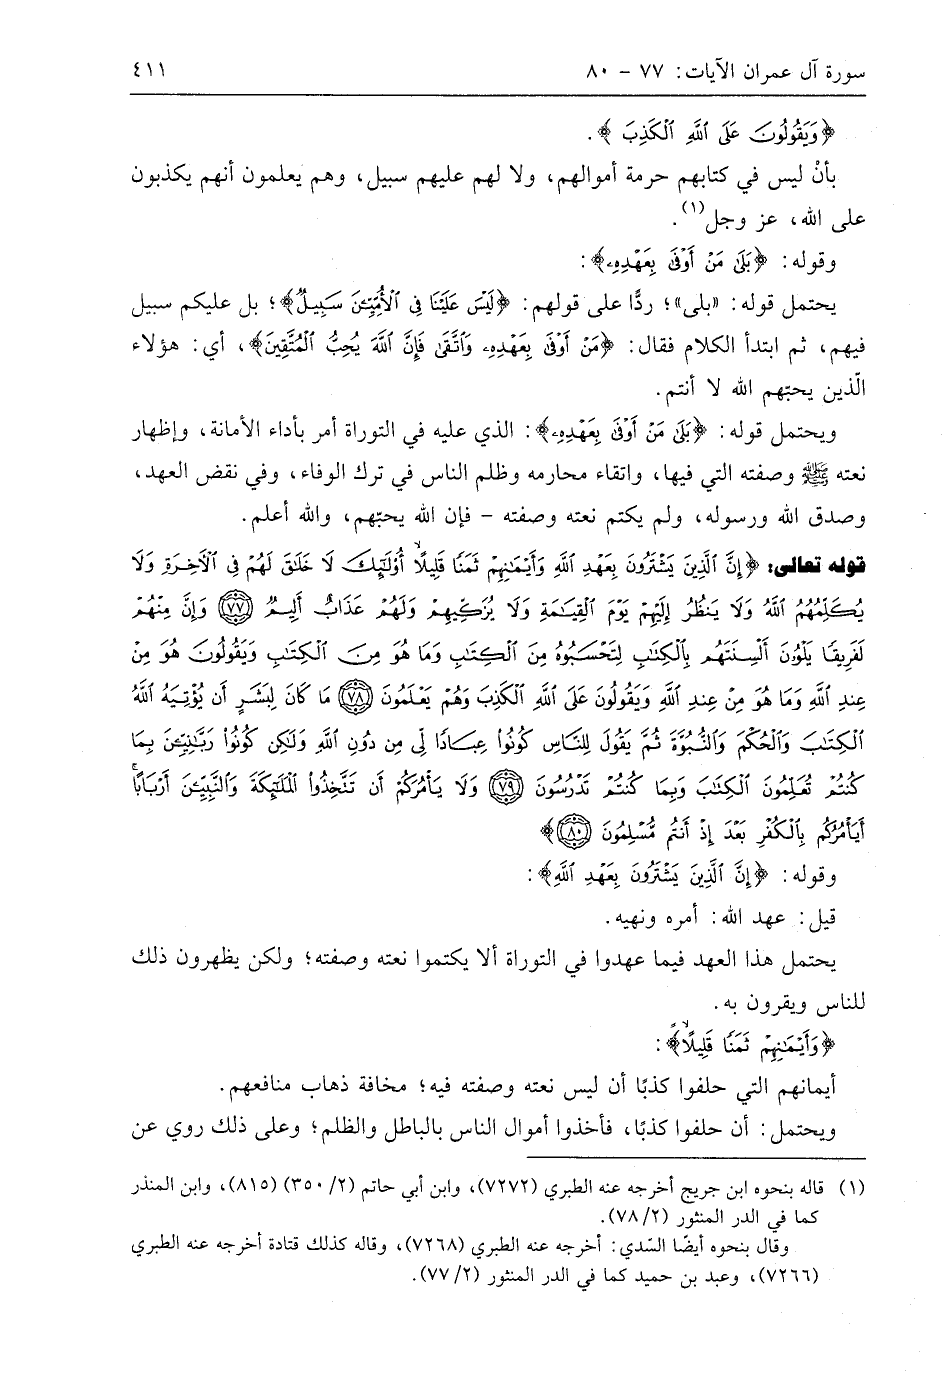 سورة آل عمران الآيات: ٧٧ - ٨٠ ٤١١
﴿وَيَقُولُونَ عَلَى ٱللَّهِ ٱلْكَذِبَ﴾.
بأنْ ليس في كتابهم حرمة أموالهم، ولا لهم عليهم سبيل، وهم يعلمون أنهم يكذبون
على الله، عز وجل(١).
وقوله: ﴿بَلَىٰ مَنْ أَوْفَىٰ بِعَهْدِهِۦ﴾:
يحتمل قوله: «بلى»؛ ردًّا على قولهم: ﴿لَيْسَ عَلَيْنَا فِي ٱلْأُمِّيِّـۧنَ سَبِيلٌ﴾؛ بل عليكم سبيل
فيهم، ثم ابتدأ الكلام فقال: ﴿مَنْ أَوْفَىٰ بِعَهْدِهِۦ وَٱتَّقَىٰ فَإِنَّ ٱللَّهَ يُحِبُّ ٱلْمُتَّقِينَ﴾، أي: هؤلاء
الّذين يحبّهم الله لا أنتم.
ويحتمل قوله: ﴿بَلَىٰ مَنْ أَوْفَىٰ بِعَهْدِهِۦ﴾: الذي عليه في التوراة أمر بأداء الأمانة، وإظهار
نعته ﷺ وصفته التي فيها، واتقاء محارمه وظلم الناس في ترك الوفاء، وفي نقض العهد،
وصدق الله ورسوله، ولم يكتم نعته وصفته - فإن الله يحبّهم، والله أعلم.
قوله تعالى: ﴿إِنَّ ٱلَّذِينَ يَشْتَرُونَ بِعَهْدِ ٱللَّهِ وَأَيْمَـٰنِهِمْ ثَمَنًا قَلِيلًا أُو۟لَـٰٓئِكَ لَا خَلَـٰقَ لَهُمْ فِى ٱلْـَٔاخِرَةِ وَلَا
يُكَلِّمُهُمُ ٱللَّهُ وَلَا يَنظُرُ إِلَيْهِمْ يَوْمَ ٱلْقِيَـٰمَةِ وَلَا يُزَكِّيهِمْ وَلَهُمْ عَذَابٌ أَلِيمٌ ٧٧ وَإِنَّ مِنْهُمْ
لَفَرِيقًا يَلْوُۥنَ أَلْسِنَتَهُم بِٱلْكِتَـٰبِ لِتَحْسَبُوهُ مِنَ ٱلْكِتَـٰبِ وَمَا هُوَ مِنَ ٱلْكِتَـٰبِ وَيَقُولُونَ هُوَ مِنْ
عِندِ ٱللَّهِ وَمَا هُوَ مِنْ عِندِ ٱللَّهِ وَيَقُولُونَ عَلَى ٱللَّهِ ٱلْكَذِبَ وَهُمْ يَعْلَمُونَ ٧٨ مَا كَانَ لِبَشَرٍ أَن يُؤْتِيَهُ ٱللَّهُ
ٱلْكِتَـٰبَ وَٱلْحُكْمَ وَٱلنُّبُوَّةَ ثُمَّ يَقُولَ لِلنَّاسِ كُونُوا۟ عِبَادًا لِّى مِن دُونِ ٱللَّهِ وَلَـٰكِن كُونُوا۟ رَبَّـٰنِيِّـۧنَ بِمَا
كُنتُمْ تُعَلِّمُونَ ٱلْكِتَـٰبَ وَبِمَا كُنتُمْ تَدْرُسُونَ ٧٩ وَلَا يَأْمُرَكُمْ أَن تَتَّخِذُوا۟ ٱلْمَلَـٰٓئِكَةَ وَٱلنَّبِيِّـۧنَ أَرْبَابًا
أَيَأْمُرُكُم بِٱلْكُفْرِ بَعْدَ إِذْ أَنتُم مُّسْلِمُونَ ٨٠﴾
وقوله: ﴿إِنَّ ٱلَّذِينَ يَشْتَرُونَ بِعَهْدِ ٱللَّهِ﴾:
قيل: عهد الله: أمره ونهيه.
يحتمل هذا العهد فيما عهدوا في التوراة ألا يكتموا نعته وصفته؛ ولكن يظهرون ذلك
للناس ويقرون به.
﴿وَأَيْمَـٰنِهِمْ ثَمَنًا قَلِيلًا﴾:
أيمانهم التي حلفوا كذبًا أن ليس نعته وصفته فيه؛ مخافة ذهاب منافعهم.
ويحتمل: أن حلفوا كذبًا، فأخذوا أموال الناس بالباطل والظلم؛ وعلى ذلك روي عن
(١) قاله بنحوه ابن جريج أخرجه عنه الطبري (٧٢٧٢)، وابن أبي حاتم (٢/ ٣٥٠) (٨١٥)، وابن المنذر
كما في الدر المنثور (٢/ ٧٨).
وقال بنحوه أيضًا السّدي: أخرجه عنه الطبري (٧٢٦٨)، وقاله كذلك قتادة أخرجه عنه الطبري
(٧٢٦٦)، وعبد بن حميد كما في الدر المنثور (٢/ ٧٧).